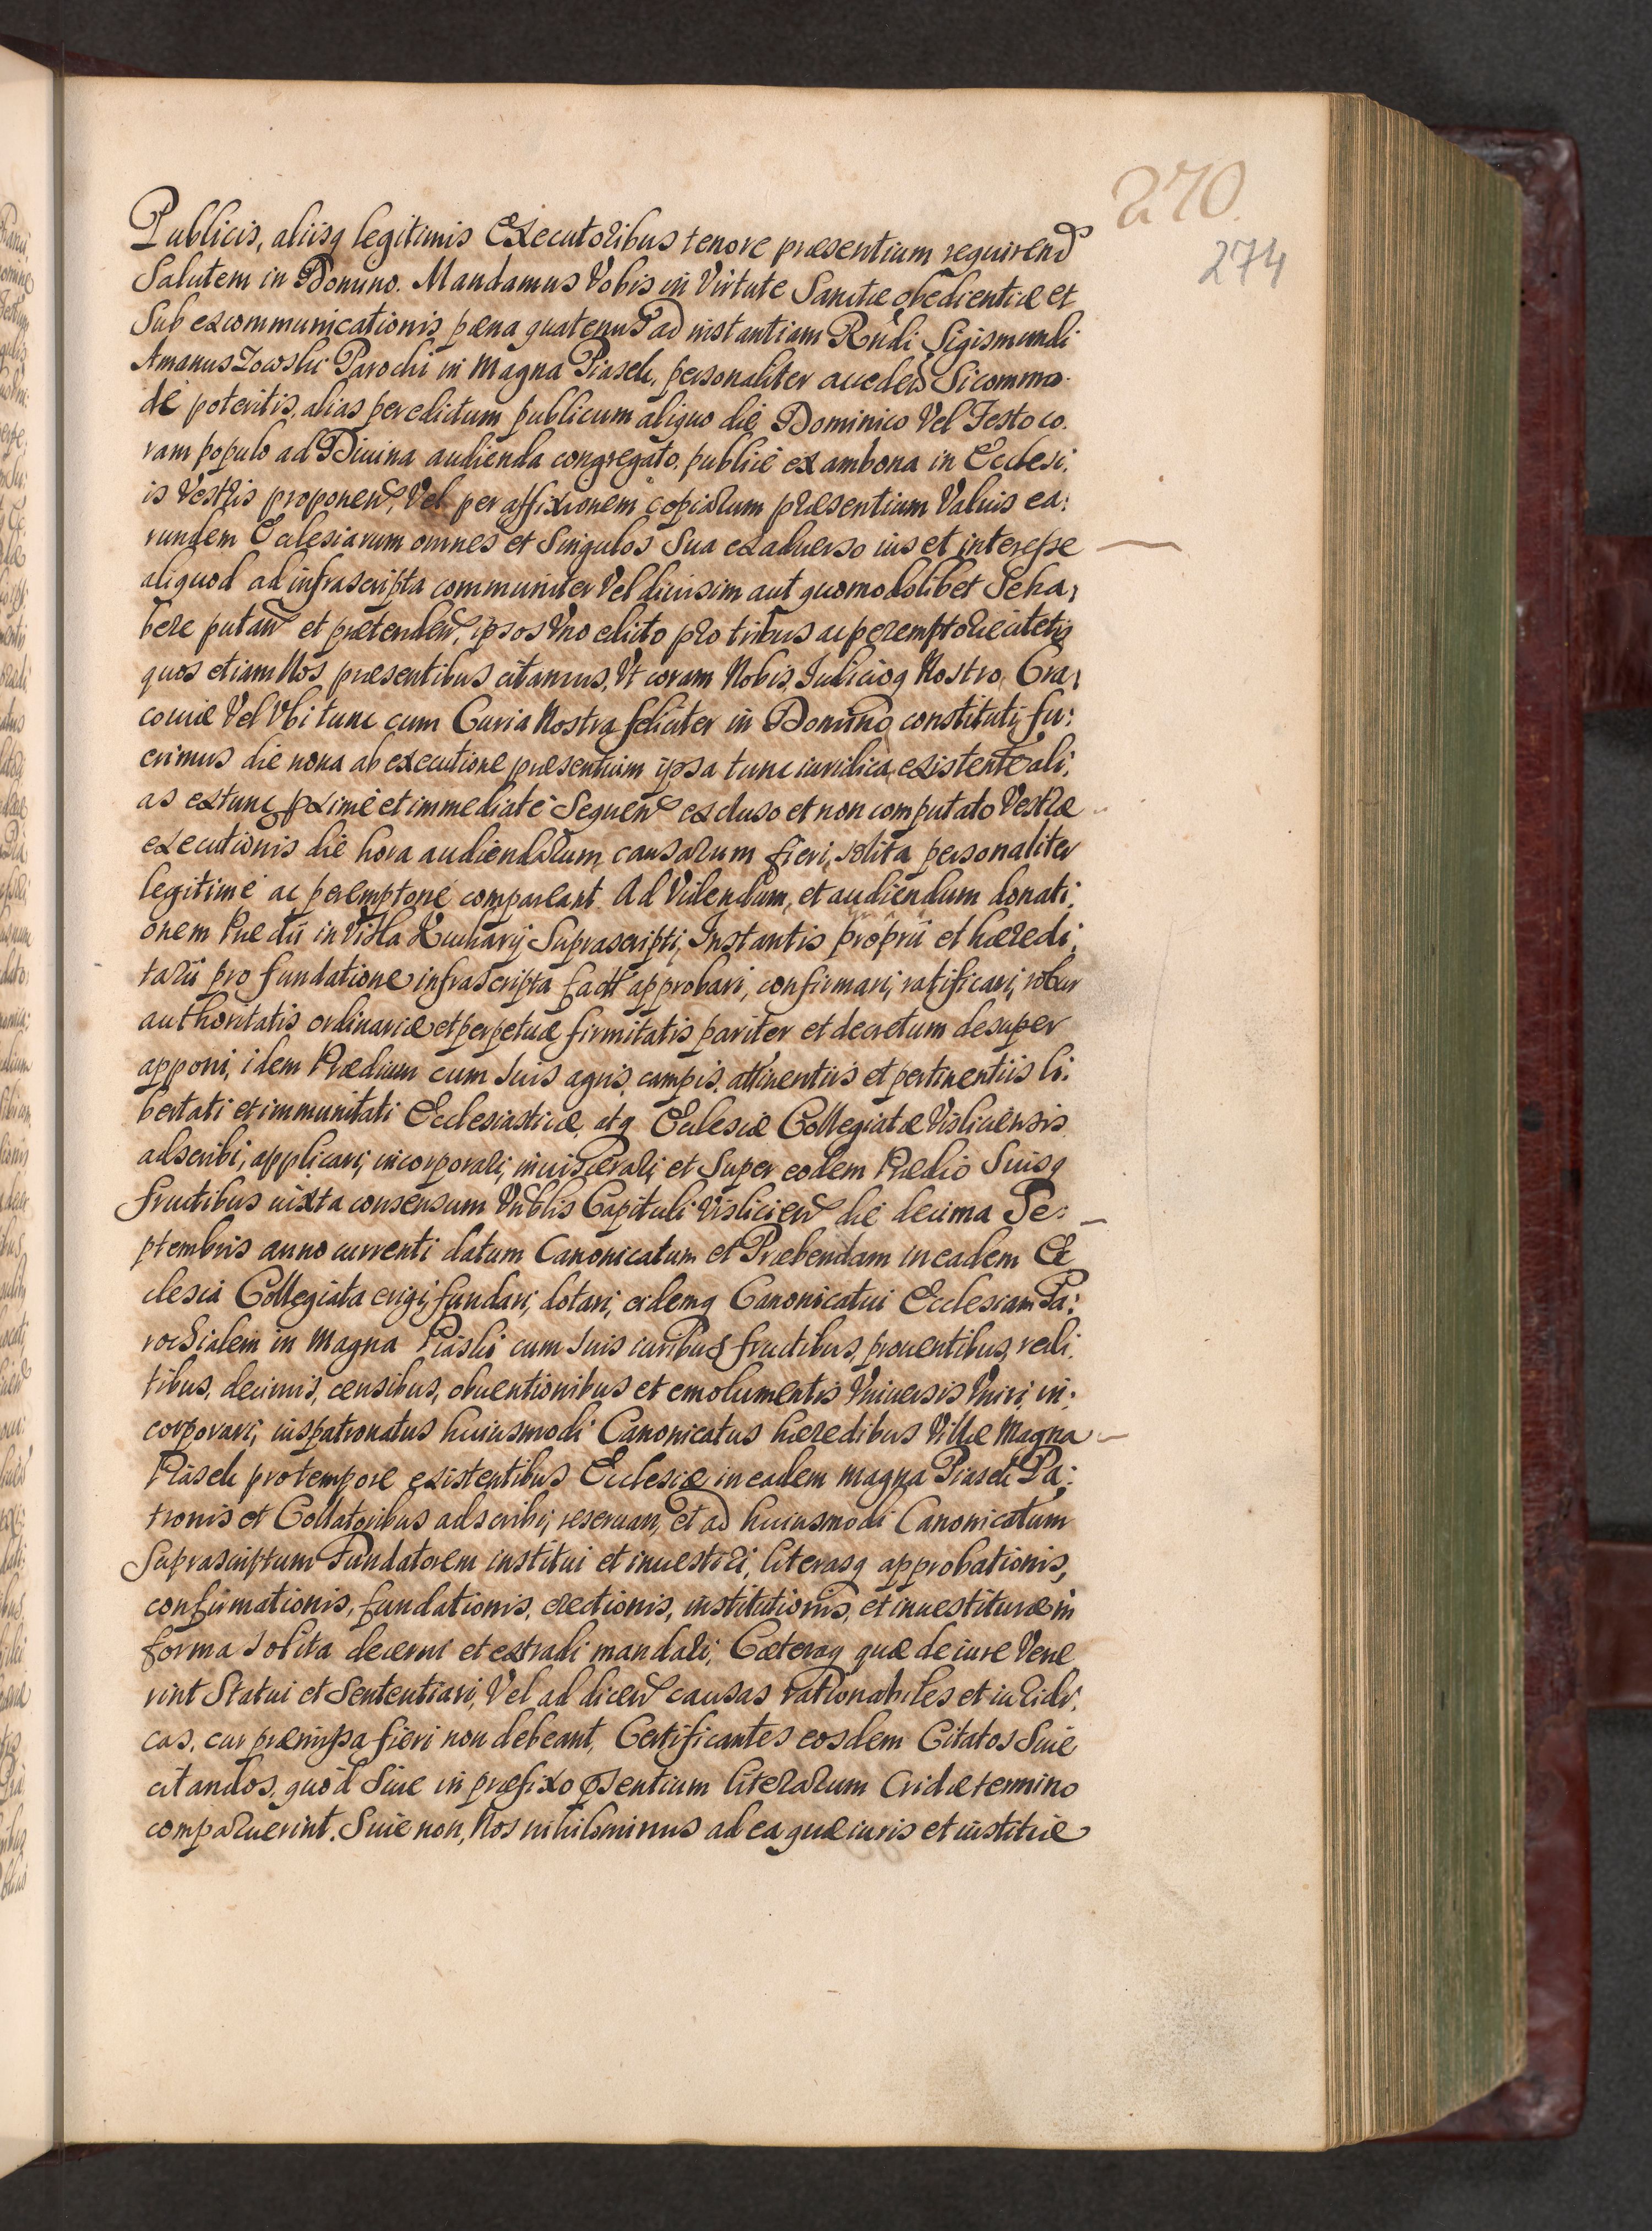 270.
274
Publicis, aliisq legitimis Executoribus tenore præsentium requirend
Salutem in Domino. Mandamus Vobis in Virtute Sanctæ obedientiæ et
Sub excommunicationis pæna quatenus ad instantiam Rndi Sigismundi
Parochi in Magna Piasek, personaliter acceden Si commo:
dè poteritis, alias per edictum publicum aliquo die Dominico Vel Festo co:
ram populo ad Diuina audienda congregato, publicè ex ambona in Ecclesi:
is Vestris proponen, Vel per affixionem copiarum præsentium Valuis ea:
rundem Ecclesiarum omnes et Singulos Sua ex aduerso ius et interesse
aliquod ad infrascripta communiter Vel diuisim aut quomodolibet Se ha:
bere putan et prætenden, ipsos Vno edicto pro tribus ac peremptorie citetis
quos etiam Nos præsentibus citamus, Vt coram Nobis, Iudicioq Nostro, Cra:
couiæ Vel Vbi tunc cum Curia Nostra feliciter in Domino constituti fu:
erimus die nona ab executione præsentium ipsa tunc iuridica existente ali:
as extunc pximè et immediatè Sequen excluso et non computato Vestræ
executionis die hora audiendarum causarum fieri solita personaliter
legitimè ac peremptoriè compareant. Ad Videndum, et audiendum donati:
onem Prædii in Villa Kuchary Suprascripti, Instantis proprii et hæredi:
tarii pro fundatione infrascripta fact approbari, confirmari, ratificari, robur
authoritatis ordinariæ et perpetuæ firmitatis pariter et decretum desuper
apponi, idem Prædium cum Suis agris, campis, attinentiis et pertinentiis li:
bertati et immunitati Ecclesiasticæ, atq Ecclesiæ Collegiatæ Visliciensis
adscribi, applicari, incorporari, inuiscerari, et Super eodem Prædio Suisq
fructibus iuxta consensum Vnblis Capituli Vislicien die decima Se:
ptembris anno currenti datum Canonicatum et Præbendam in eadem Ec
clesia Collegiata erigi, fundari, dotari, eidemq Canonicatui Ecclesiam Pa:
rochialem in Magna Piaski cum Suis iuribus fructibus, prouentibus, redi:
tibus, decimis, censibus, obuentionibus et emolumentis Vniuersis Vniri, in:
corporari, iuspatronatus huiusmodi Canonicatus hæredibus Villæ Magna
Piasek pro tempore existentibus Ecclesiæ in eadem Magna Piasek Pa:
tronis et Collatoribus adscribi, reseruari, et ad huiusmodi Canonicatum
Suprascriptum Fundatorem institui et inuestiri, literasq approbationis,
confirmationis, fundationis, erectionis, institutionis, et inuestituræ in
forma Solita decerni et extradi mandari, Cæteraq quæ de iure Vene
rint Statui et Sententiari, Vel ad dicen causas rationabiles et iuridi:
cas, cur præmissa fieri non debeant, Certificantes eosdem Citatos Siue
citandos, quòd Siue in præfixo psentium literarum Cridæ termino
comparuerint, Siue non, Nos nihilominus ad ea quæ iuris et iustitiæ